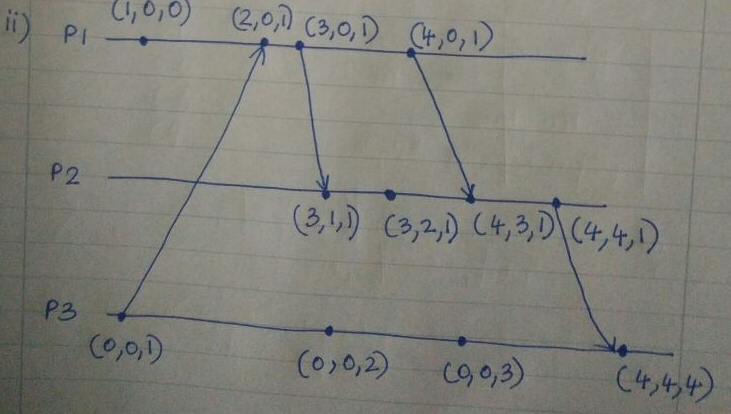 ii) P1 (1,0,0) (2,0,1) (3,0,1) (4,0,1)
P2
(3,1,1) (3,2,1) (4,3,1) (4,4,1)
P3
(0,0,1) (0,0,2) (0,0,3) (4,4,4)